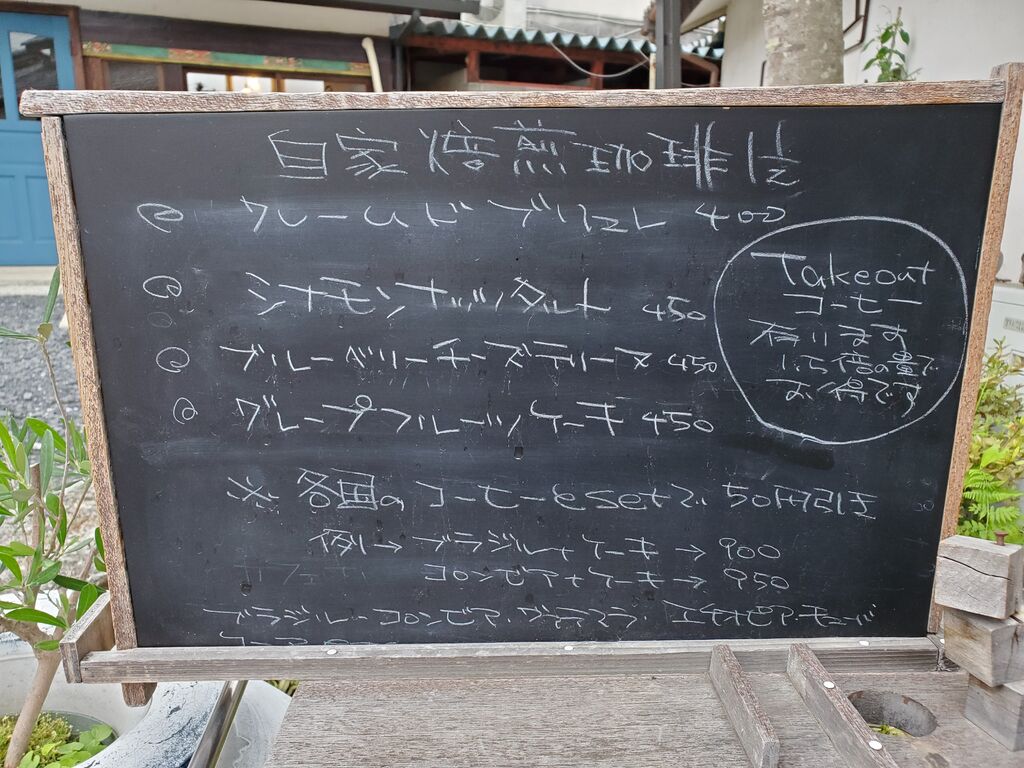 自家焙煎珈琲 1 1/2
クレームド ブリュレ 400
シナモンナッツタルト 450
ブルーベリーチーズテリーヌ 450
グレープフルーツケーキ 450
Takeout
コーヒー
有ります
1.5倍の量で
お得です
※ 各国のコーヒーとsetで 50円引き
例→ ブラジル+ケーキ → 900
コロンビア+ケーキ → 950
ブラジル・コロンビア・グアテマラ・エチオピア・キューバ